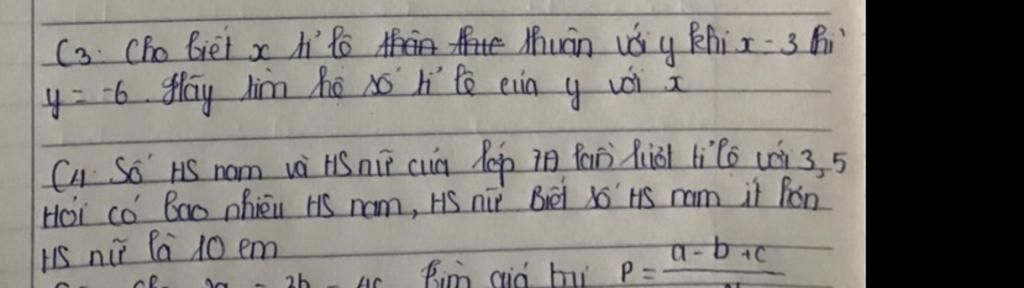 C3: Cho biết x tỉ lệ thuận với y khi x = 3 thì
y = -6. Hãy tìm hệ số tỉ lệ của y với x
C4: Số HS nam và HS nữ của lớp 7A lần lượt tỉ lệ với 3, 5
Hỏi có bao nhiêu HS nam, HS nữ Biết số HS nam ít hơn
HS nữ là 10 em
= 3b = 4c tìm giá trị P = a - b + c